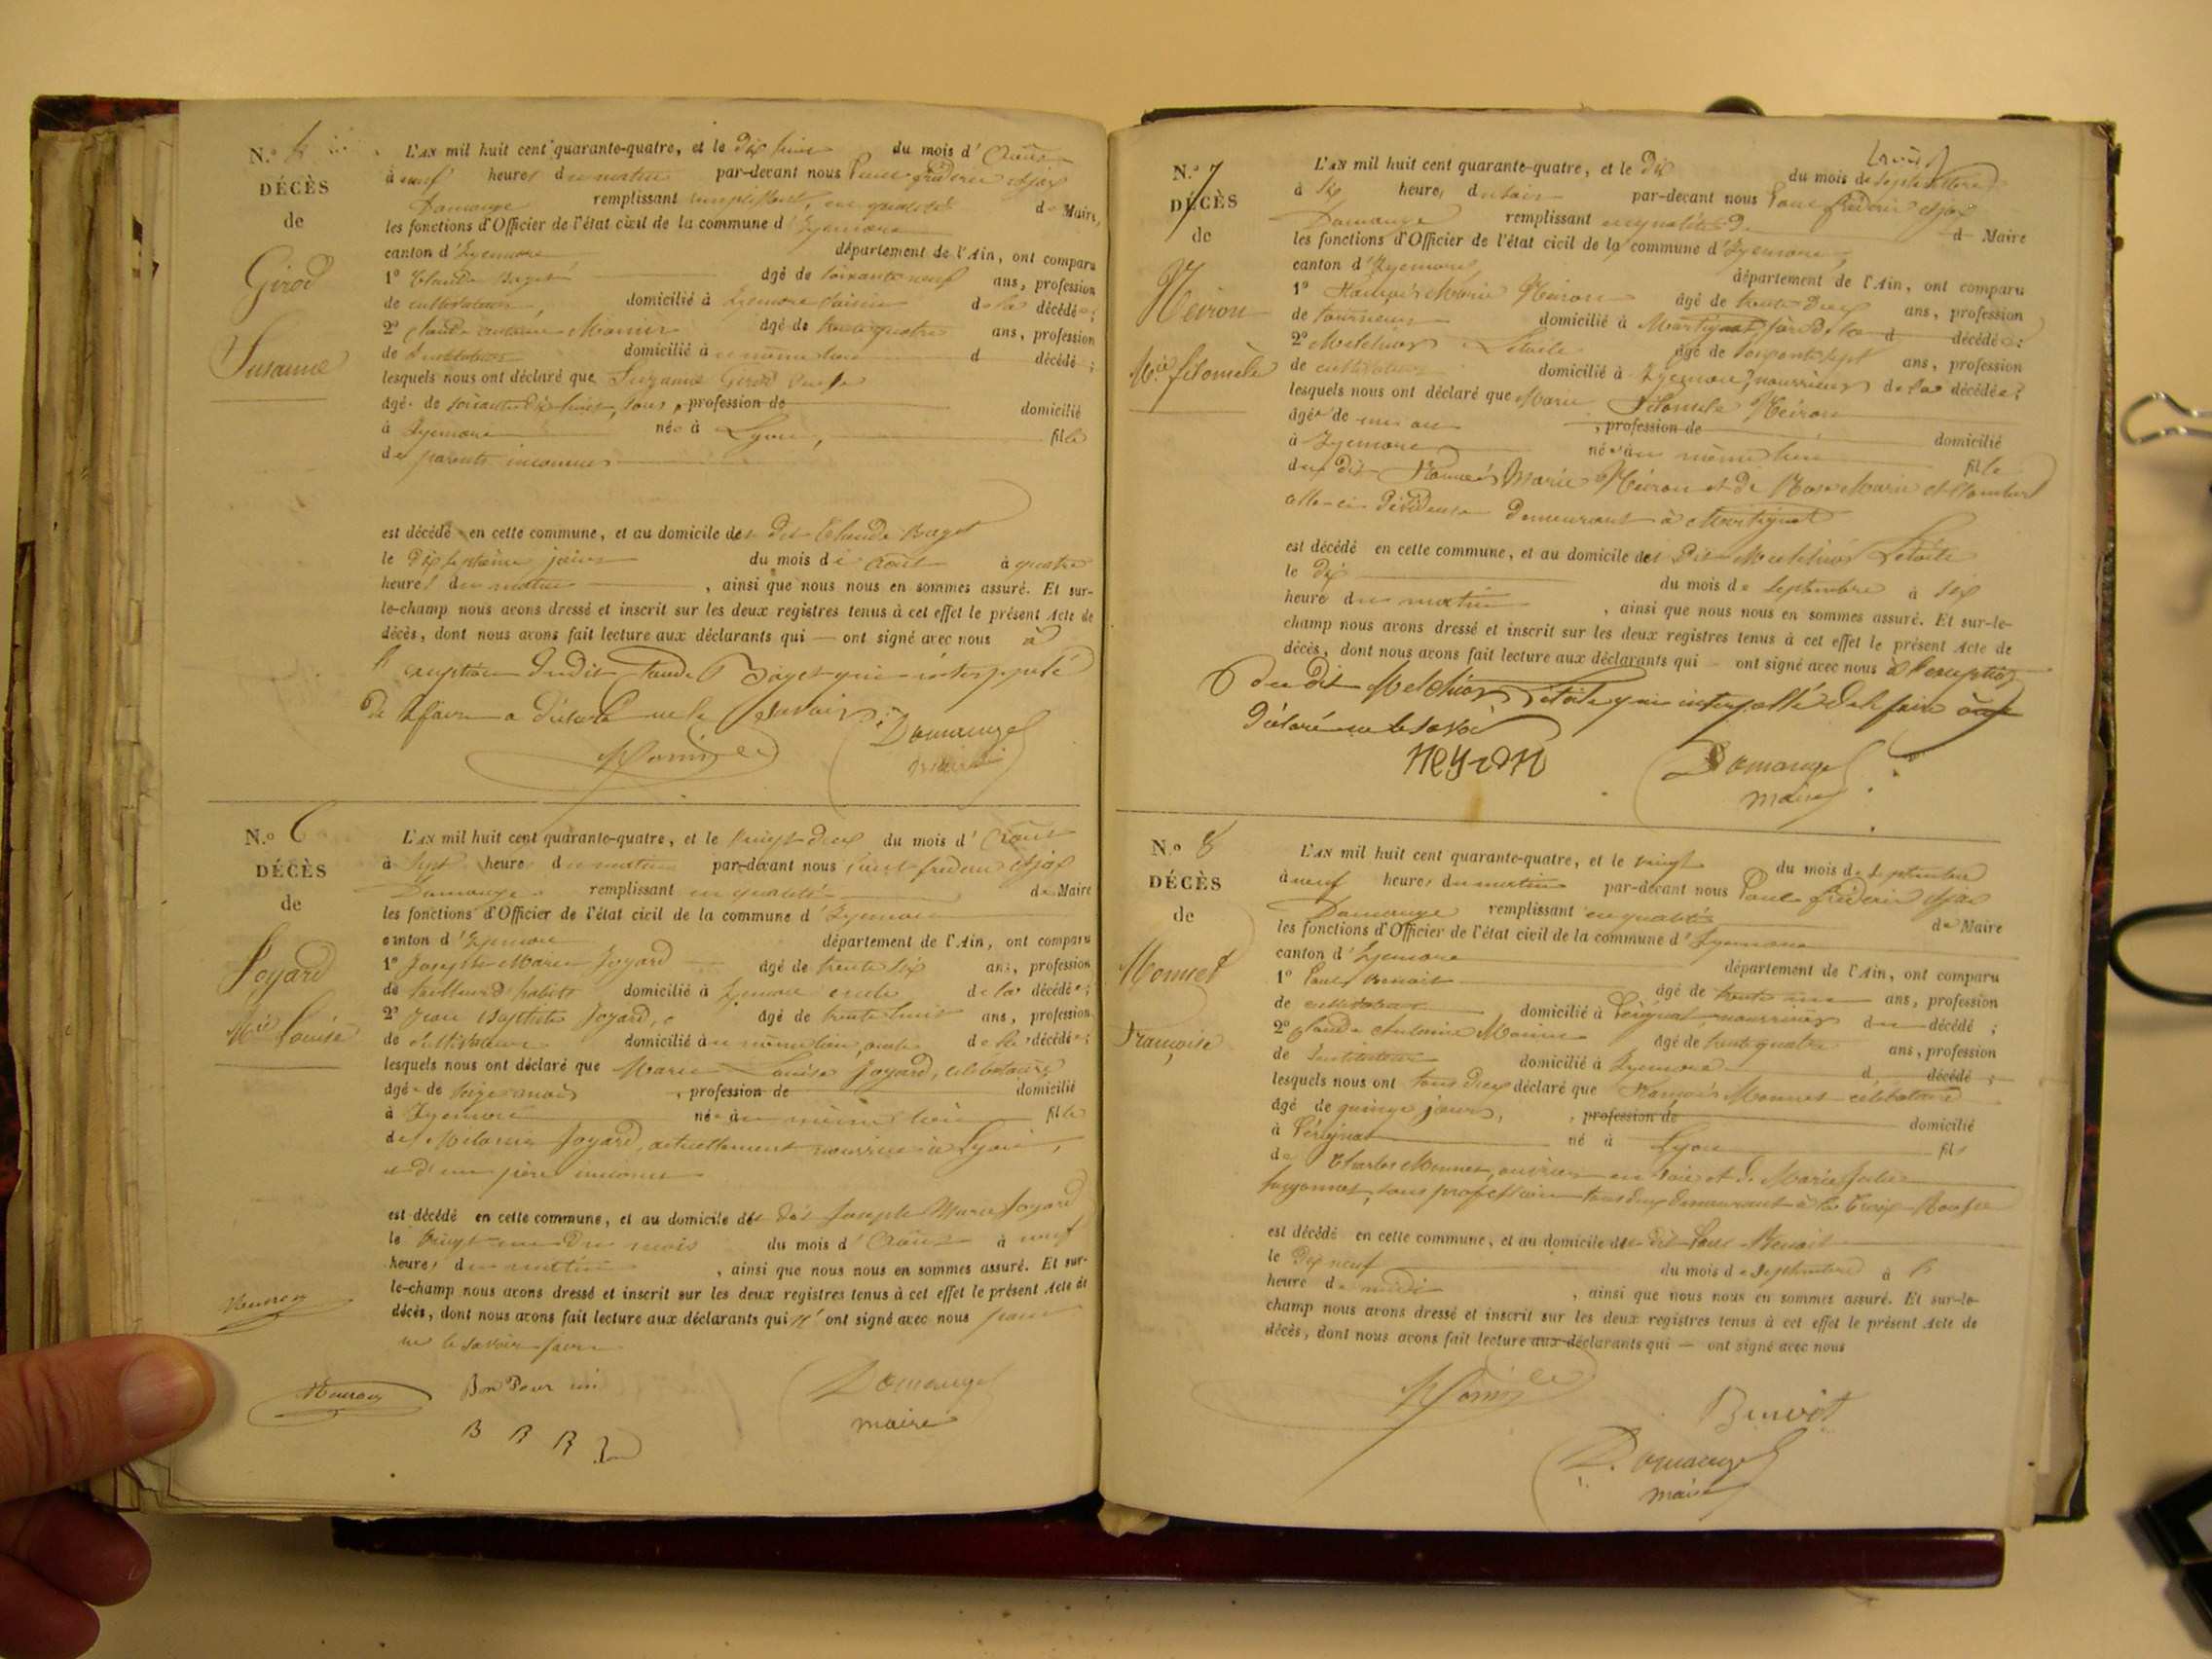 N.º
DÉCÈS
de
Girod
Susanne
L'AN mil huit cent quarante-quatre, et le dix huit du mois d'Août
à neuf heures du matin par-devant nous Paul frédéric Ajax
Domange remplissant en qualité de Maire,
les fonctions d'Officier de l'état civil de la commune d'Izernore
canton d'Izernore département de l'Ain, ont comparu
1º Claude âgé de soixante neuf ans, profession
de cultivateur, domicilié à Izernore de la décédée;
2º Claude antoine Monnier âgé de trente quatre ans, profession
de Instituteur domicilié à même lieu d décédé;
lesquels nous ont déclaré que Suzanne Girod
âgé de soixante dix huit ans, profession de domicilié
à Izernore née à Lyon, fille
de parents inconnus
est décédé en cette commune, et au domicile du dit Claude
le dix septième jour du mois de Août à quatre
heures du matin, ainsi que nous nous en sommes assuré. Et sur-
le-champ nous avons dressé et inscrit sur les deux registres tenus à cet effet le présent Acte de
décès, dont nous avons fait lecture aux déclarants qui — ont signé avec nous à
l'exception du dit Claude qui interpellé
de le faire a déclaré ne le savoir.
Domange
maire
N.º 6
DÉCÈS
de
Joyard
Mie Louise
L'AN mil huit cent quarante-quatre, et le vingt deux du mois d'Août
à sept heures du matin par-devant nous Paul frédéric Ajax
Domange remplissant en qualité de Maire
les fonctions d'Officier de l'état civil de la commune d'Izernore
canton d'Izernore département de l'Ain, ont comparu
1º Joseph Marie Joyard âgé de trente six ans, profession
de tailleur d'habits domicilié à Izernore oncle de la décédée;
2º Jean Baptiste Joyard, âgé de trente huit ans, profession
de cultivateur domicilié au même lieu, oncle de la décédée;
lesquels nous ont déclaré que Marie Louise Joyard, célibataire
âgée de seize mois, profession de domicilié
à Izernore née au même lieu fille
de Mélanie Joyard, actuellement nourrice à Lyon,
et d'un père inconnu
est décédé en cette commune, et au domicile du dit Joseph Marie Joyard
le vingt un du mois du mois d'Août à neuf
heures du matin, ainsi que nous nous en sommes assuré. Et sur-
le-champ nous avons dressé et inscrit sur les deux registres tenus à cet effet le présent Acte de
décès, dont nous avons fait lecture aux déclarants qui n'ont signé avec nous pour
ne le savoir faire
Bon Pour
Domange
maire
N.º 7
DÉCÈS
de
Neiron
Mie filomèle
L'AN mil huit cent quarante-quatre, et le Dix du mois de septembre
à six heures du soir par-devant nous Paul frédéric Ajax
Domange remplissant en qualité de Maire
les fonctions d'Officier de l'état civil de la commune d'Izernore,
canton d'Izernore, département de l'Ain, ont comparu
1º François Marie Neiron âgé de trente deux ans, profession
de tourneur domicilié à Martignat, père de la d décédée;
2º Melchior Létoile âgé de ans, profession
de cultivateur domicilié à Izernore, nourricier de la décédée;
lesquels nous ont déclaré que Marie Filomèle Neiron
âgée de un an, profession de domicilié
à Izernore née au même lieu fille
du dit François Marie Neiron et de Rose Marie
celle-ci dévideuse demeurant à Martignat
est décédé en cette commune, et au domicile du dit Melchior Létoile
le dix du mois de Septembre à six
heure du matin, ainsi que nous nous en sommes assuré. Et sur-le-
champ nous avons dressé et inscrit sur les deux registres tenus à cet effet le présent Acte de
décès, dont nous avons fait lecture aux déclarants qui ont signé avec nous à l'exception
du dit Melchior Létoile qui interpellé de le faire a
déclaré ne le savoir
Neyron
Domange
maire
N.º 8
DÉCÈS
de
Monnet
Françoise
L'AN mil huit cent quarante-quatre, et le vingt du mois de septembre
à neuf heures du matin par-devant nous Paul frédéric Ajax
Domange remplissant en qualité de Maire
les fonctions d'Officier de l'état civil de la commune d'Izernore
canton d'Izernore département de l'Ain, ont comparu
1º Paul Benoit âgé de trente un ans, profession
de cultivateur domicilié à Pérignat, nourricier du décédé;
2º Claude Antoine Monnier âgé de trente quatre ans, profession
de Instituteur domicilié à Izernore d décédé;
lesquels nous ont tous deux déclaré que François Monnet célibataire
âgé de quinze jours, profession de domicilié
à Pérignat né à Lyon fils
de Charles Monnet, ouvrier en soie et de Marie Julie
sans profession tous deux demeurant à la Croix Rousse
est décédé en cette commune, et au domicile du dit Paul Benoit
le dix neuf du mois de Septembre à
heure de midi, ainsi que nous nous en sommes assuré. Et sur-le-
champ nous avons dressé et inscrit sur les deux registres tenus à cet effet le présent Acte de
décès, dont nous avons fait lecture aux déclarants qui — ont signé avec nous
Benoit
Domange
maire